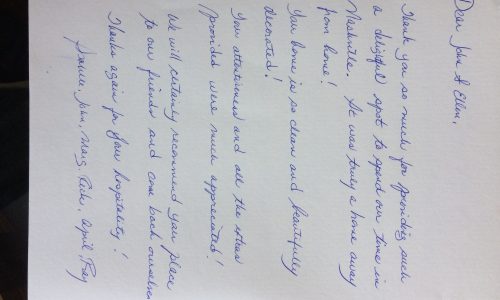 Dear John & Ellen,
Thank you so much for providing such
a delightful spot to spend our time in
Nashville. It was truly a home away
from home!
Your home is so clean and beautifully
decorated!
Your attentiveness and all the extras
provided were much appreciated!
We will certainly recommend your place
to our friends and come back ourselves
Thanks again for your hospitality!
John, Marg, Rick, April, Ray